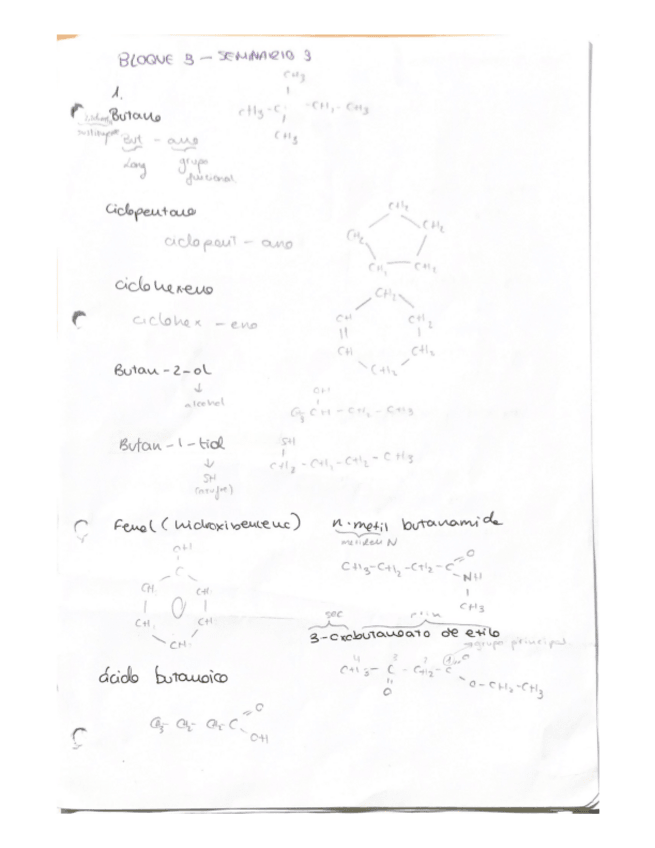 BLOQUE 3 - SEMINARIO 3
1.
Butano
CH3
CH3 - C - CH2 - CH3
CH3
But - ano
Long grupo
funcional
Ciclopentano
ciclopent - ano
CH2
CH2 CH2
CH2 CH2
ciclohexeno
ciclohex - eno
CH2
CH CH2
CH CH2
CH2
Butan - 2 - ol
↓
alcohol
OH
CH3 CH - CH2 - CH3
Butan - 1 - tiol
↓
SH
(azufre)
SH
CH2 - CH2 - CH2 - CH3
Fenol (hidroxibenceno)
OH
C
CH CH
CH CH
CH
n-metil butanamida
CH3 - CH2 - CH2 - C = O
NH
CH3
sec prin
3-oxobutanoato de etilo
grupo principal
4 3 2 1
CH3 - C - CH2 - C = O
O
O - CH2 - CH3
ácido butanoico
CH3 - CH2 - CH2 - C = O
OH